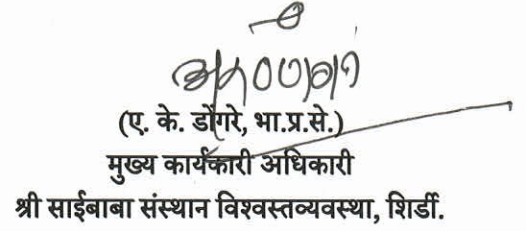 (ए. के. डोंगरे, भा.प्र.से.)
मुख्य कार्यकारी अधिकारी
श्री साईबाबा संस्थान विश्वस्तव्यवस्था, शिर्डी.